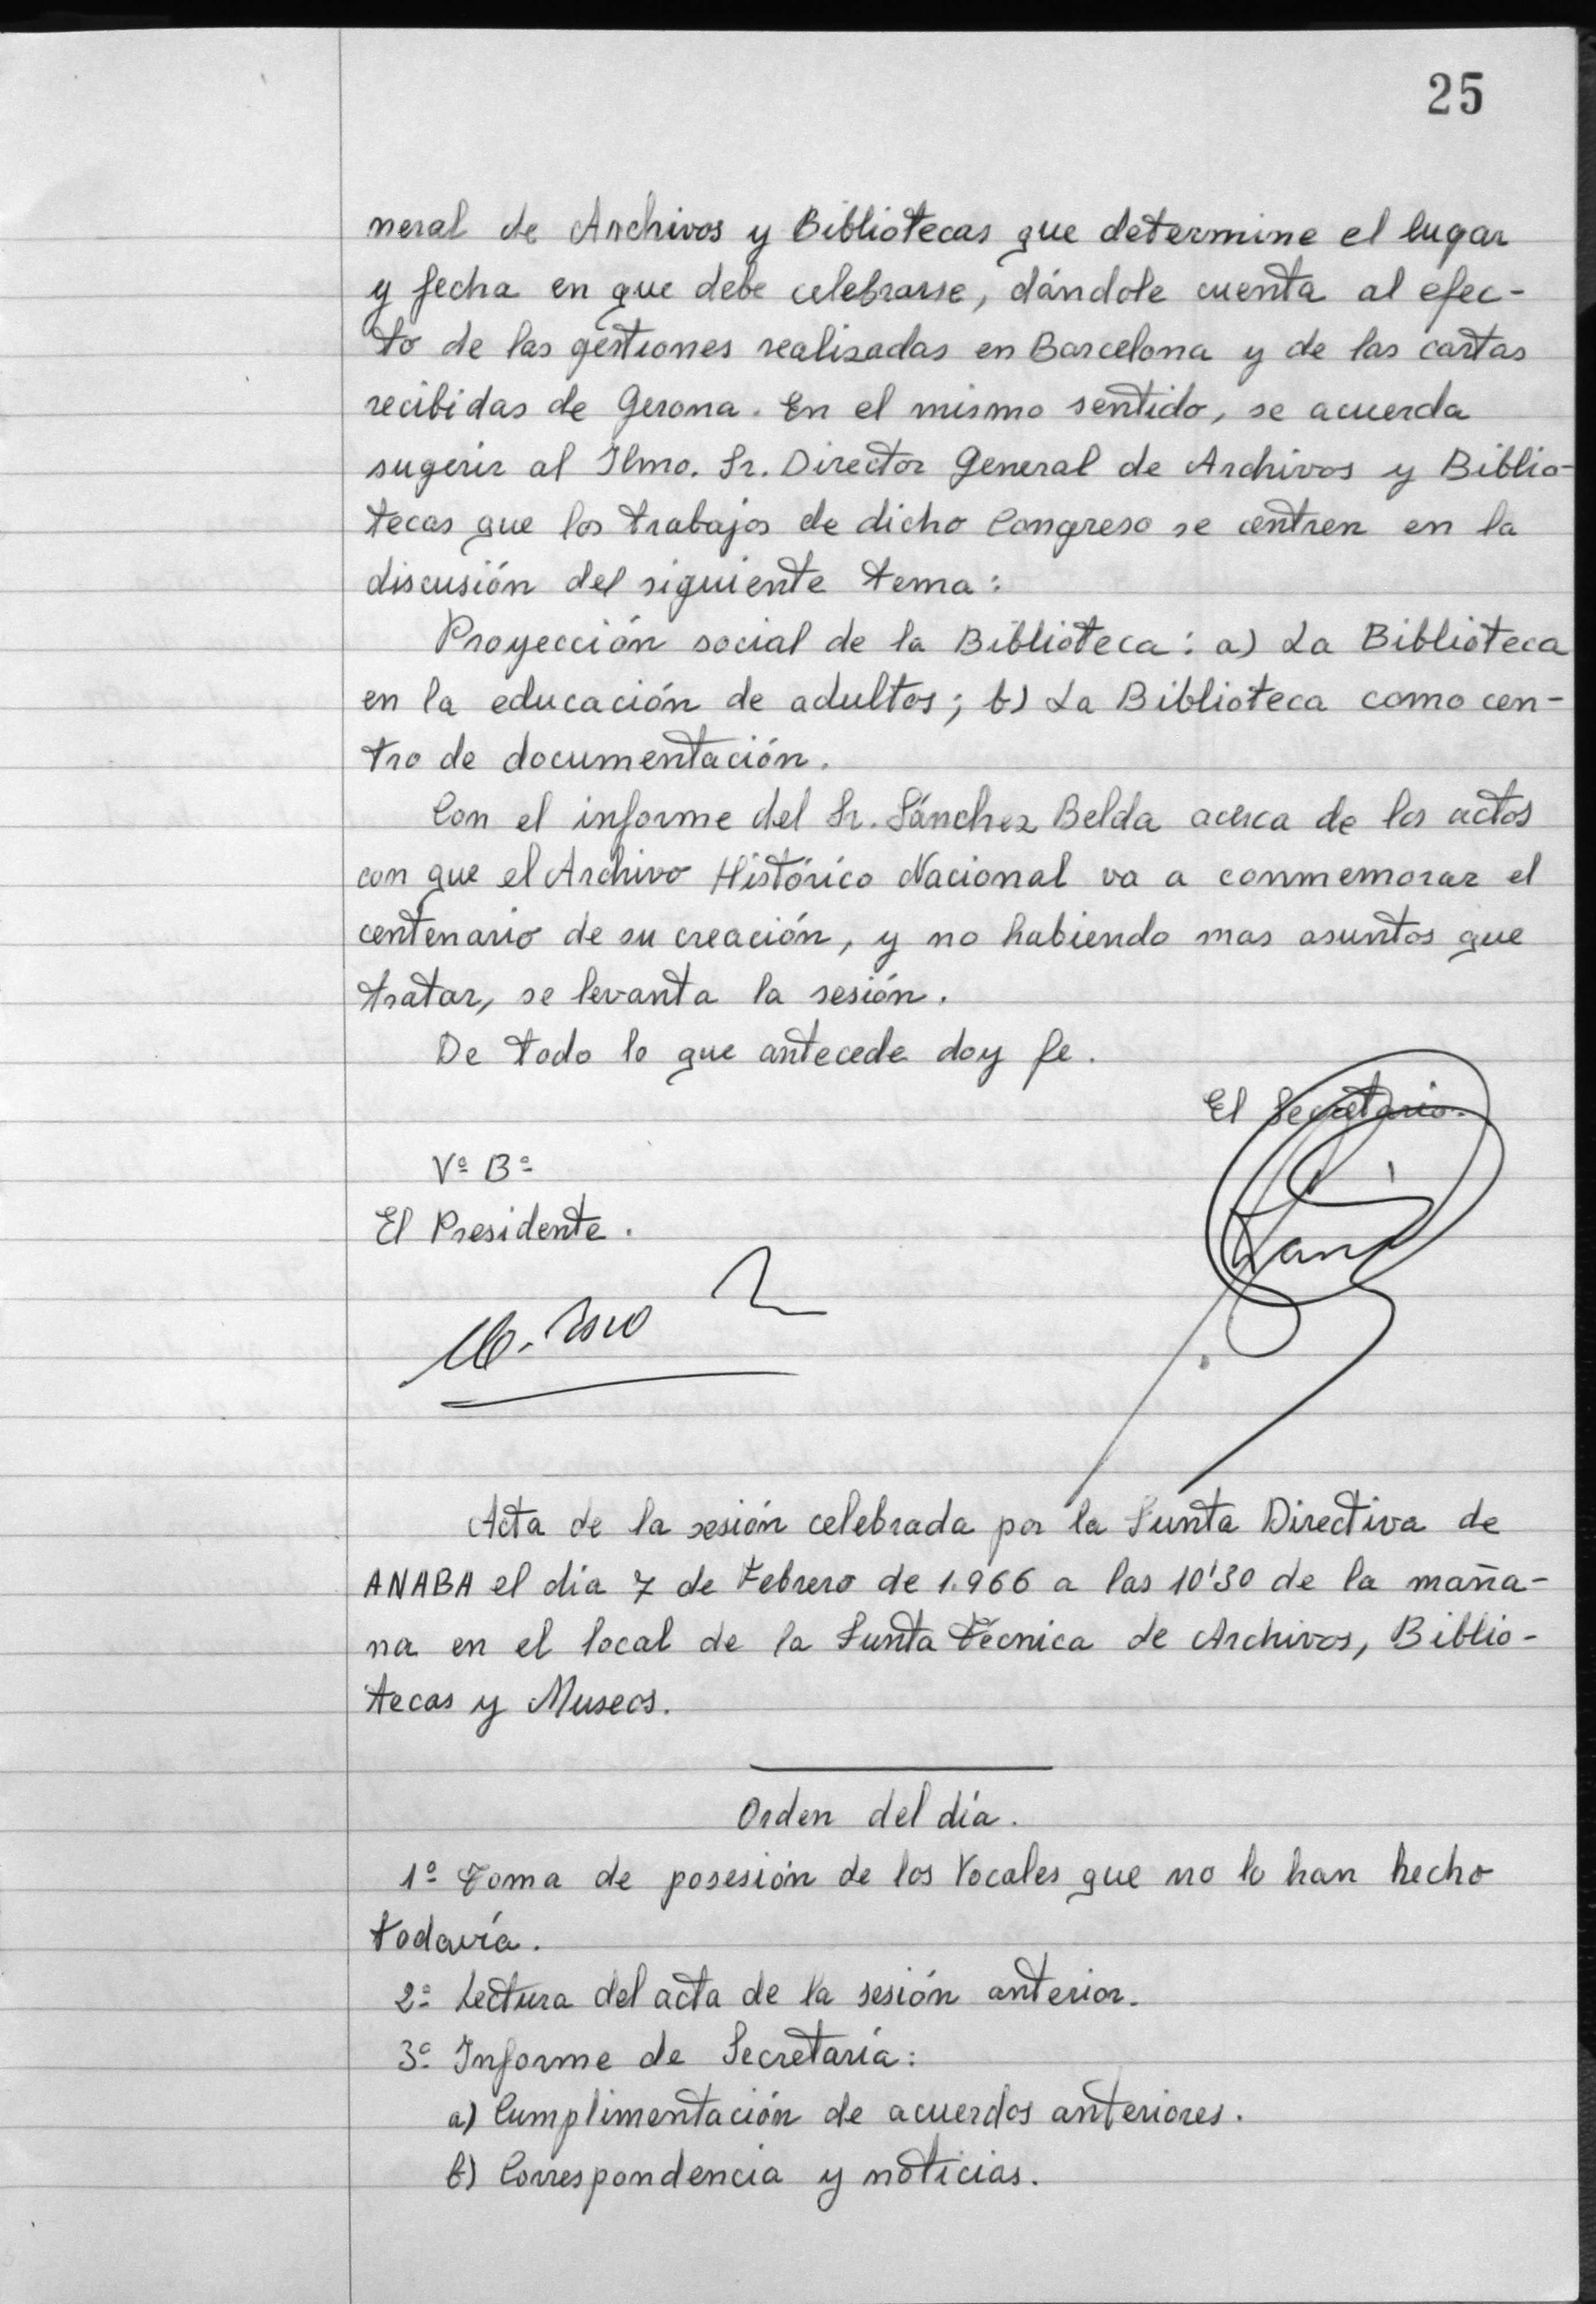 25
neral de Archivos y Bibliotecas que determine el lugar
y fecha en que debe celebrarse, dándole cuenta al efec-
to de las gestiones realizadas en Barcelona y de las cartas
recibidas de Gerona. En el mismo sentido, se acuerda
sugerir al Ilmo. Sr. Director General de Archivos y Biblio-
tecas que los trabajos de dicho Congreso se centren en la
discusión del siguiente tema:
Proyección social de la Biblioteca: a) La Biblioteca
en la educación de adultos; b) La Biblioteca como cen-
tro de documentación.
Con el informe del Sr. Sánchez Belda acerca de los actos
con que el Archivo Histórico Nacional va a conmemorar el
centenario de su creación, y no habiendo mas asuntos que
tratar, se levanta la sesión.
De todo lo que antecede doy fe.
El Secretario.
Vº Bº
El Presidente.
Acta de la sesión celebrada por la Junta Directiva de
ANABA el día 7 de Febrero de 1.966 a las 10'30 de la maña-
na en el local de la Junta Técnica de Archivos, Biblio-
tecas y Museos.
Orden del día.
1º Toma de posesión de los Vocales que no lo han hecho
todavía.
2º Lectura del acta de la sesión anterior.
3º Informe de Secretaría:
a) Cumplimentación de acuerdos anteriores.
b) Correspondencia y noticias.